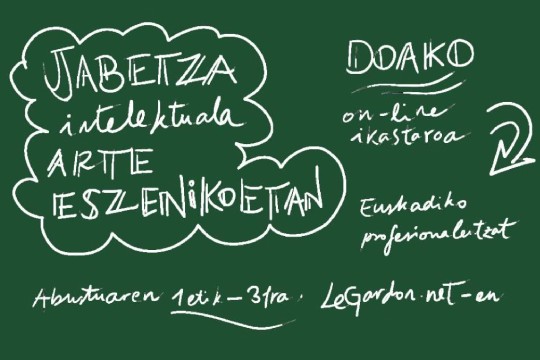 JABETZA
intelektuala
ARTE
ESZENIKOETAN
DOAKO
on-line
ikastaroa
Euskadiko
profesionalentzat
Abuztuaren 1etik-31ra. LeGardon.net-en